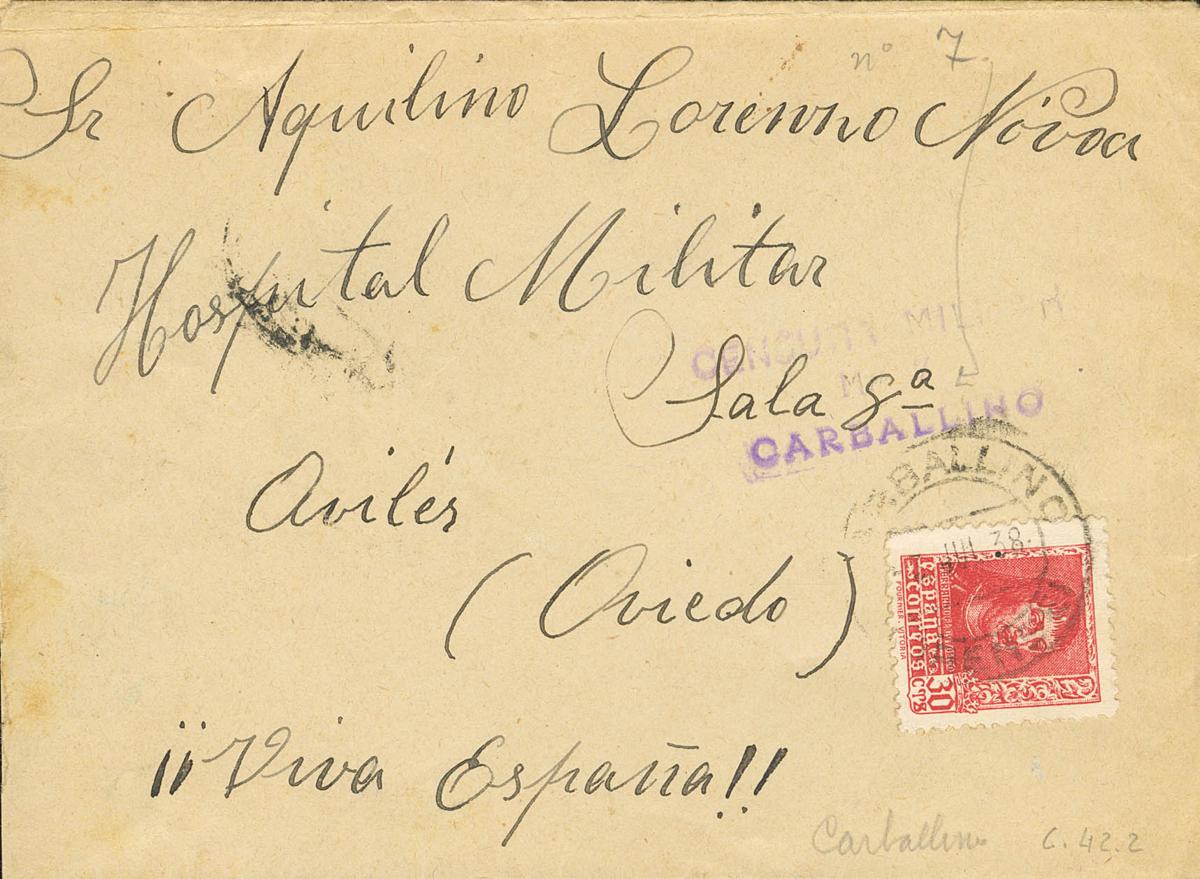 nº 7
Sr Aquilino Lorenno Nóvoa
Hospital Militar
Sala 8ª
Avilés
(Oviedo)
¡¡Viva España!!
MILITAR
CARBALLINO
CARBALLINO
JUL 38
ESPAÑA
CORREOS
FOURNIER VITORIA
30 CTS
Carballino 6.42.2